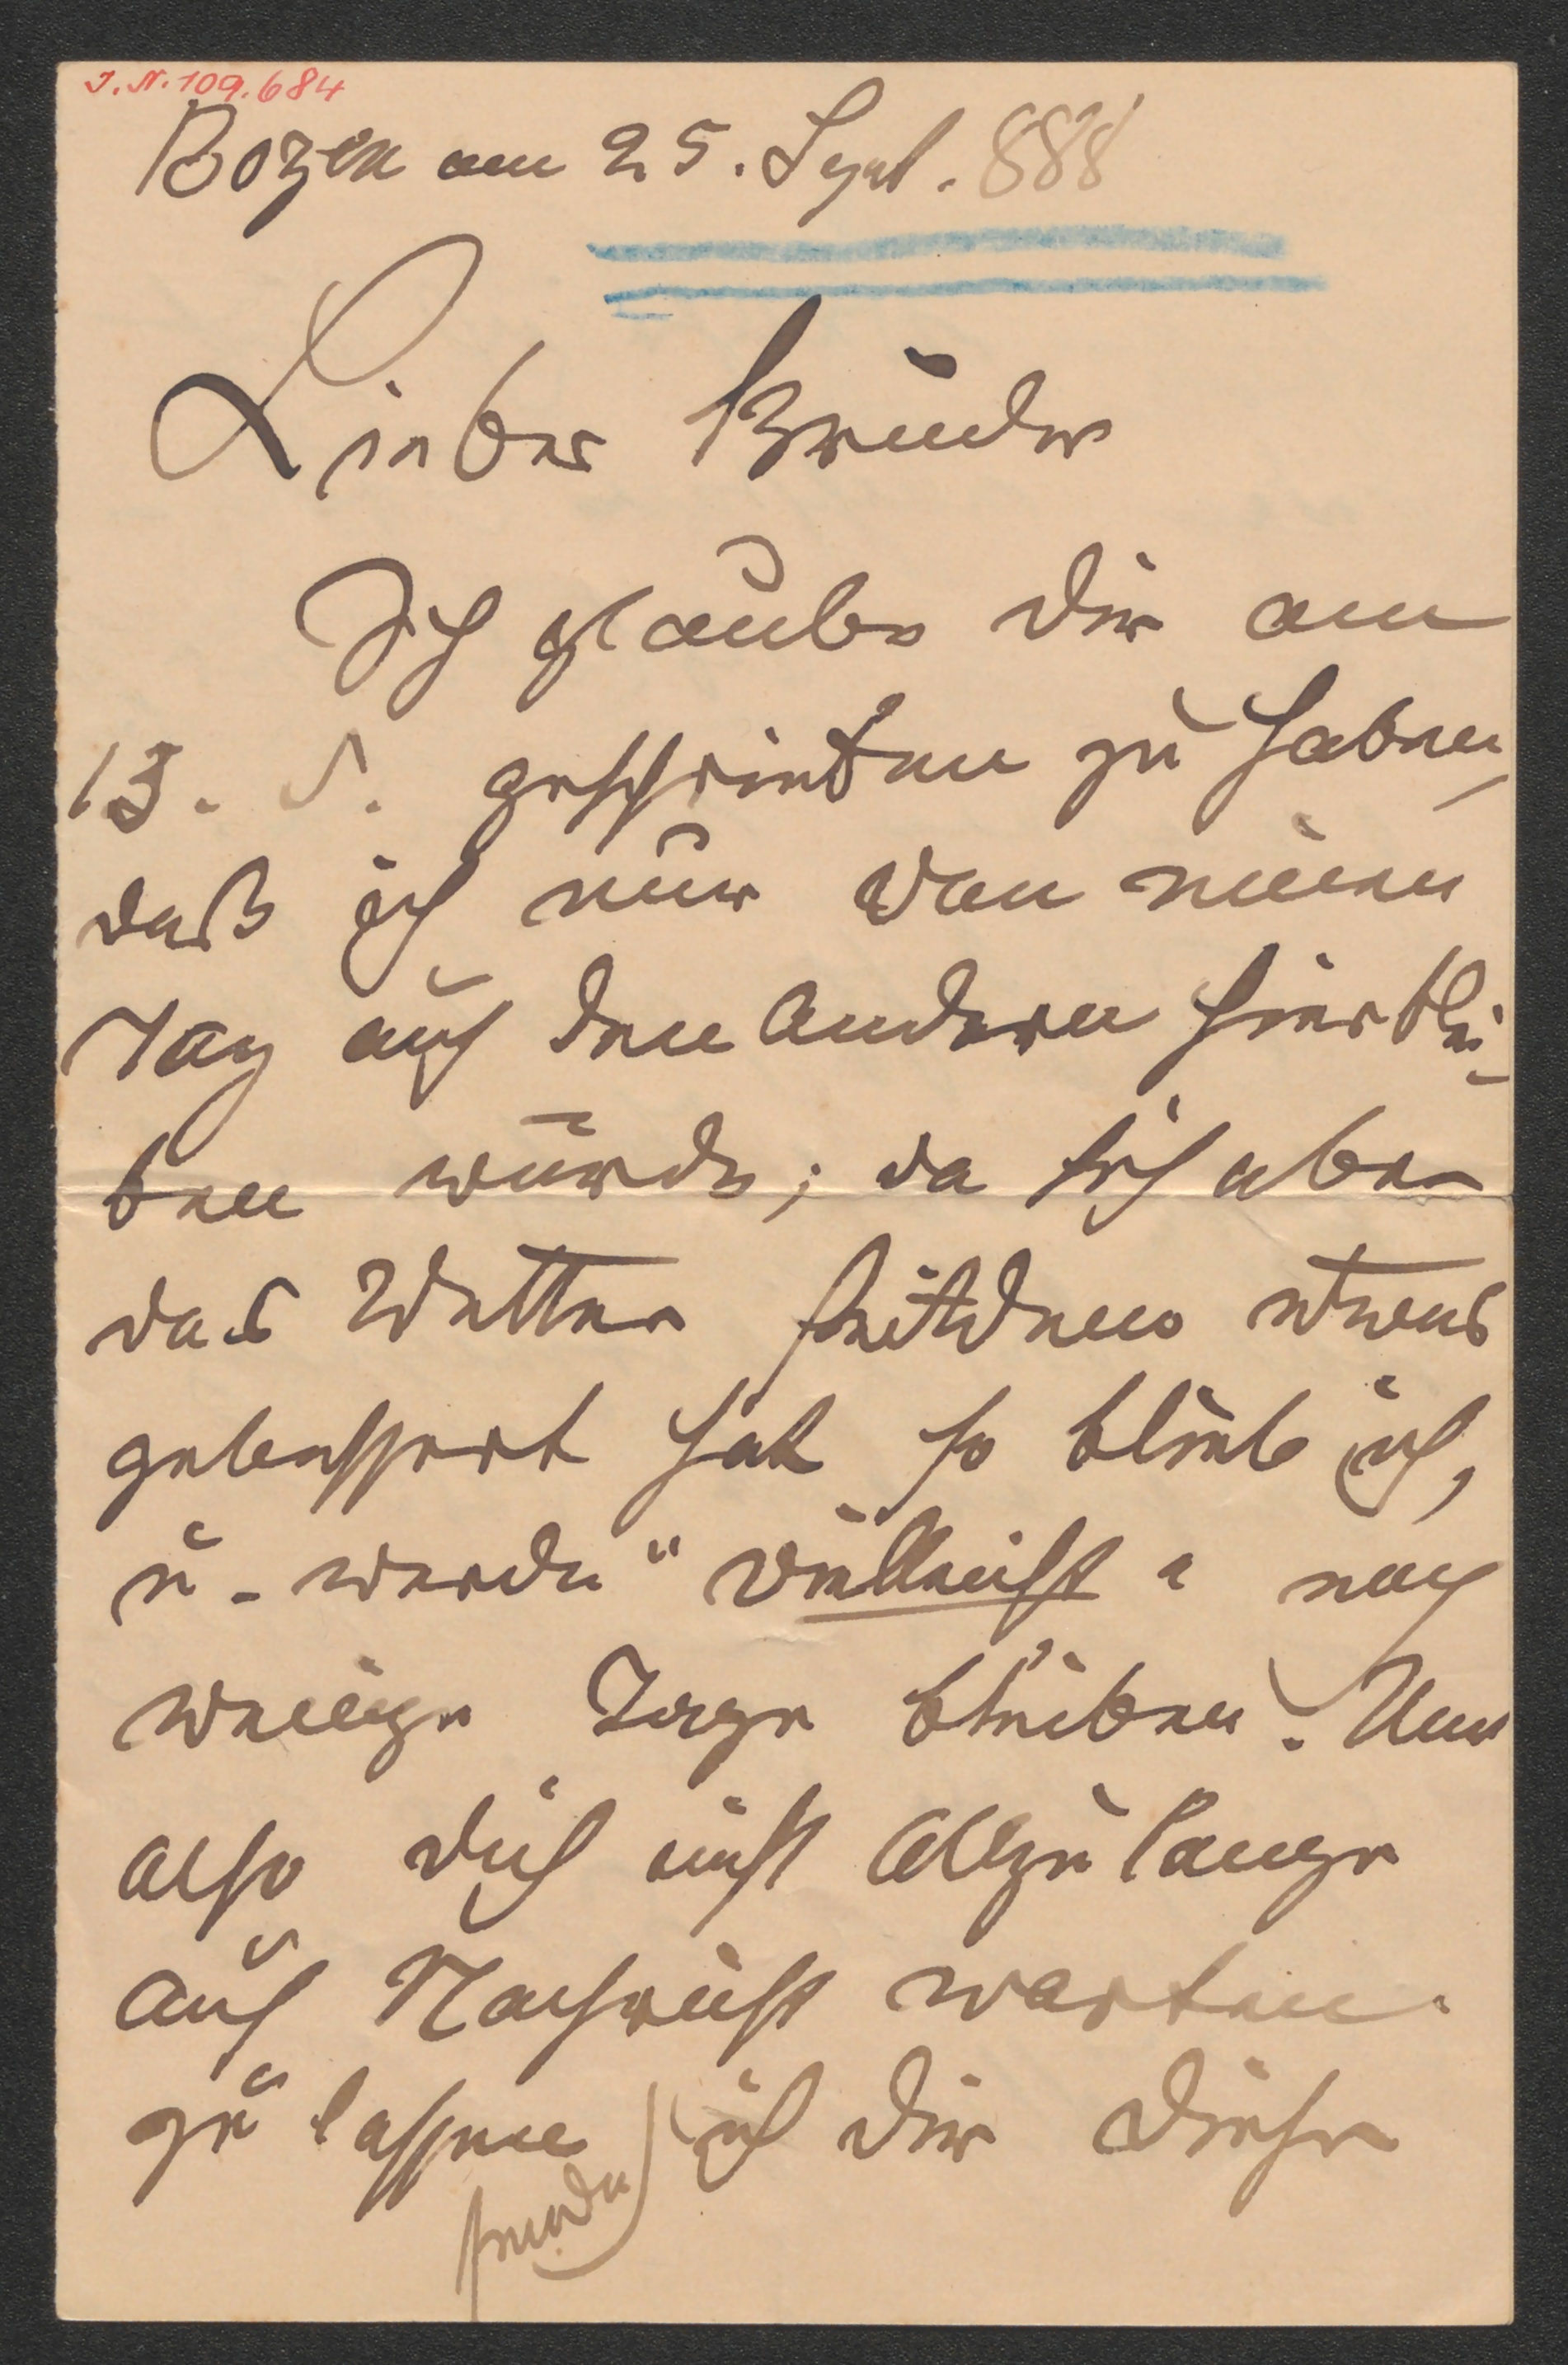 I.N. 109.684
Bozen am 25. Sept. 888
Lieber Bruder
Ich glaube dir am
13. d. geschrieben zu haben,
daß ich nur von einen
Tag auf den andern hierblei-
ben würde; da sich aber
das Wetter seitdem etwas
gebessert hat so blieb ich,
u. werde "vielleicht" noch
wenige Tage bleiben. Um
also dich nicht allzulange
auf Nachricht warten
zu lassen ich dir diese
sende